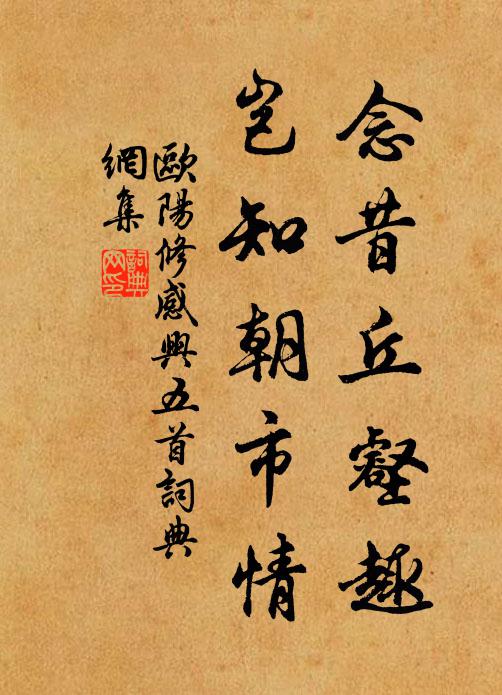 念昔丘壑趣
岂知朝市情
歐陽修感興五首詞典
網集
詞典
网印